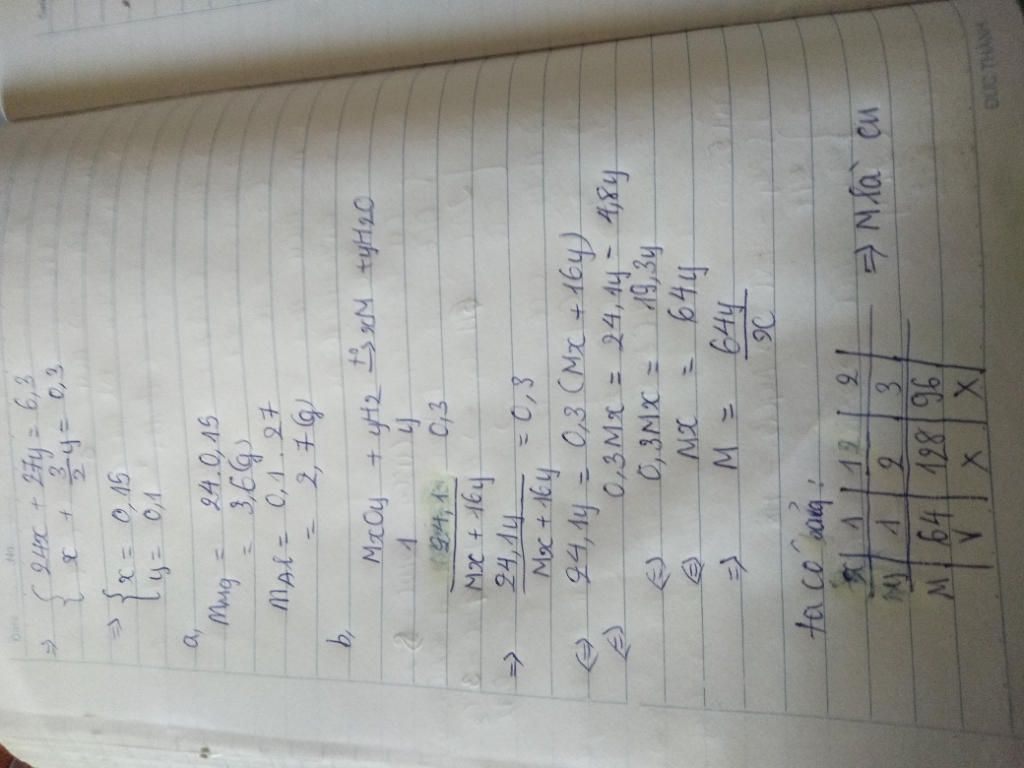 => { 24x + 27y = 6,3
x + 3/2 y = 0,3
=> { x = 0,15
y = 0,1
a,
mMg = 24.0,15
= 3,6(g)
mAl = 0,1 . 27
= 2,7(g)
b,
MxOy + yH2 t°→ xM + yH2O
1 y
24,1/Mx + 16y 0,3
=> 24,1y/Mx + 16y = 0,3
<=> 24,1y = 0,3(Mx + 16y)
<=> 0,3Mx = 24,1y - 4,8y
<=> 0,3Mx = 19,3y
<=> Mx = 64y
=> M = 64y/x
ta có bảng:
x | 1 | 1 | 2 |
y | 1 | 2 | 3 | => M là Cu
M | 64 | 128 | 96 |
V | X | X
ĐỨC THÀNH